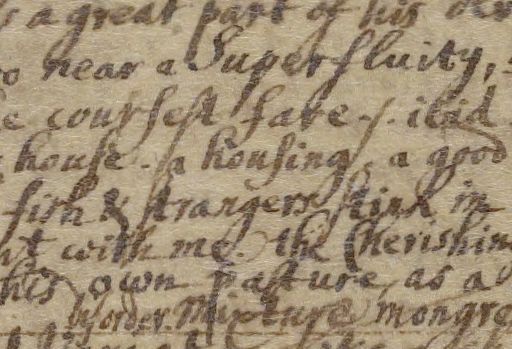 a great part of his
near a Superfluity,
coursest fare. / . ilad
house. / a housing / a good
fish & strangers stink in
with me. the Cherishing
his own pasture, as a
order. Mixture mongre